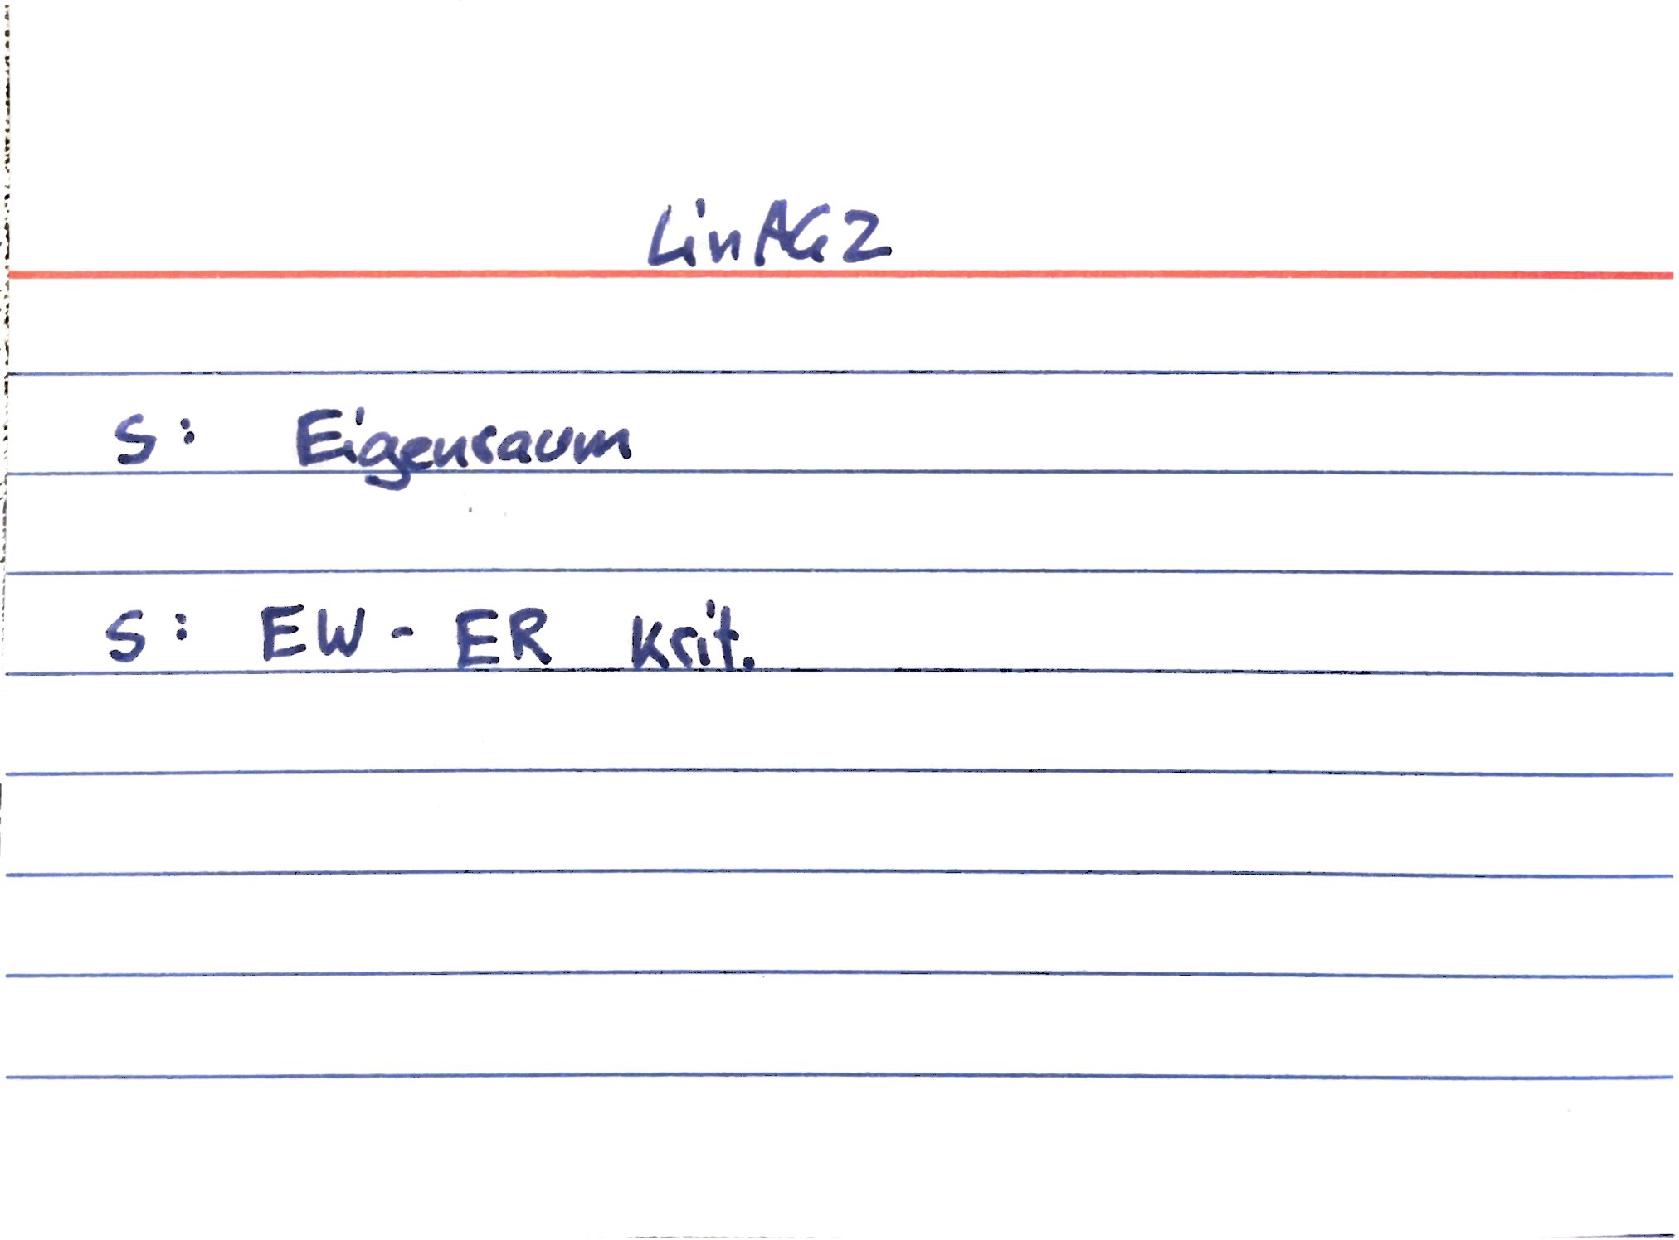 LinAG2
S: Eigenraum
S: EW - ER Krit.